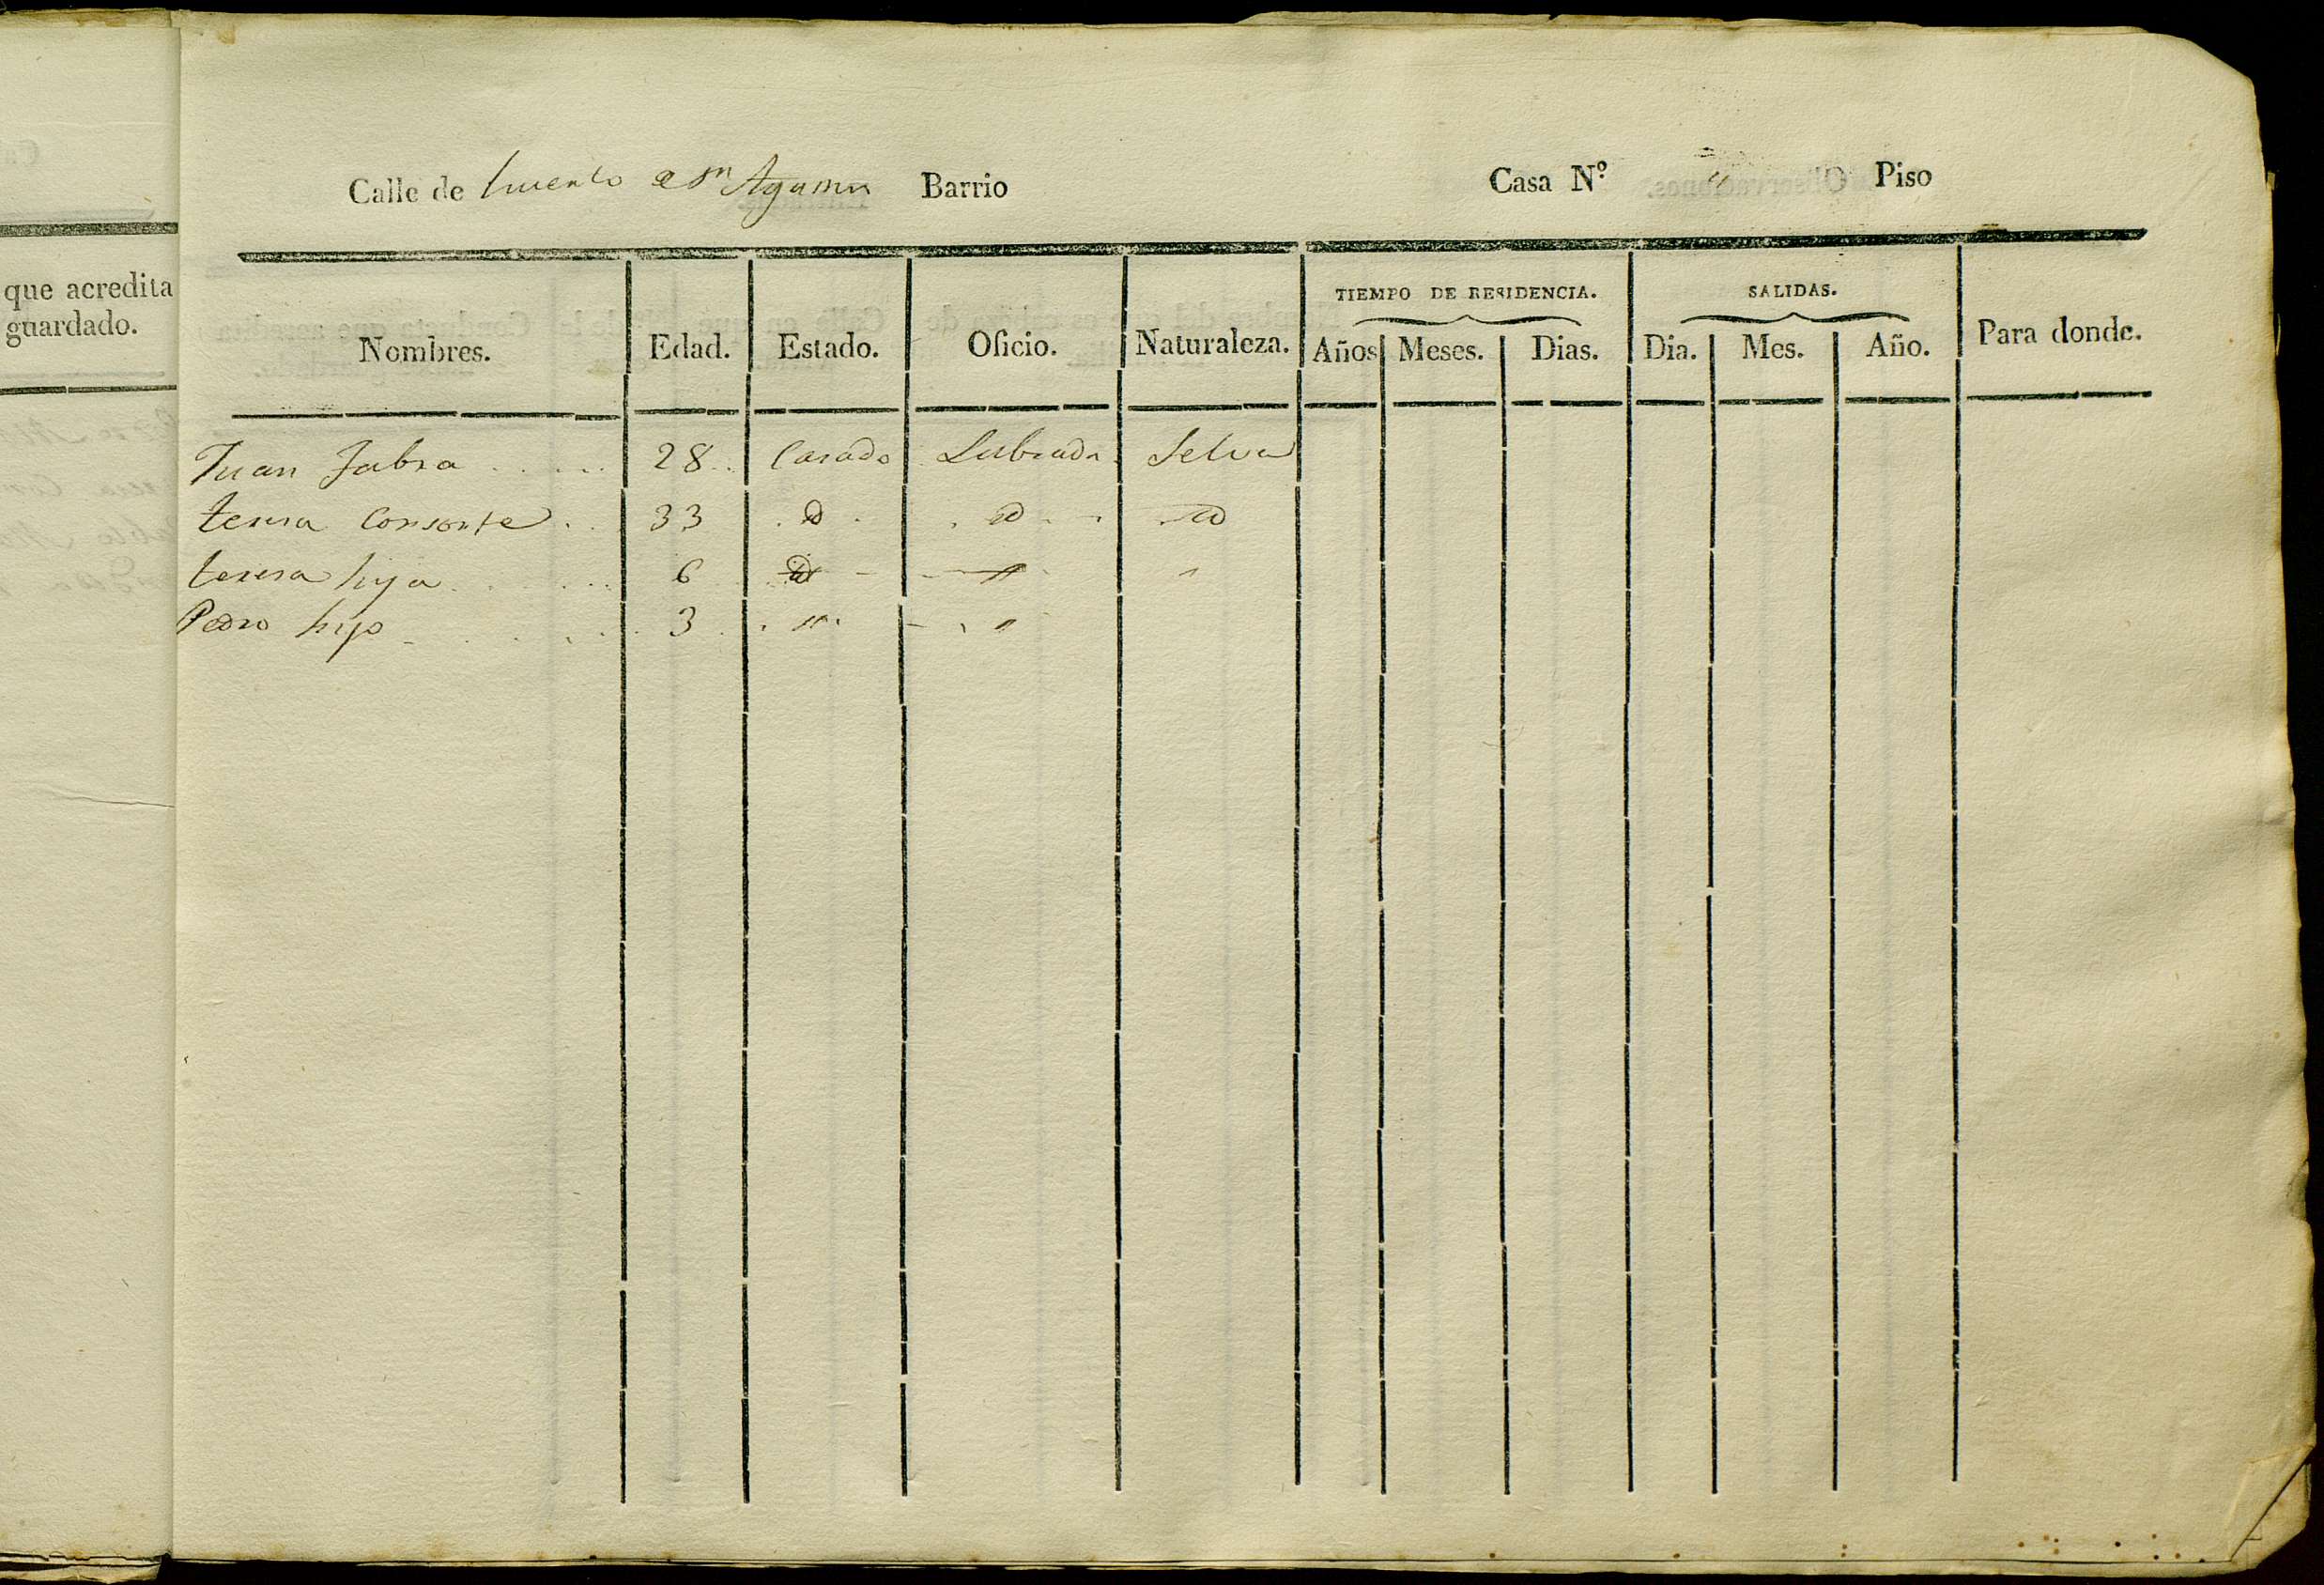 que acredita
guardado.
Calle de a Sn Agustin Barrio Casa N.º Piso
TIEMPO DE RESIDENCIA. SALIDAS.
Nombres. Edad. Estado. Oficio. Naturaleza. Años Meses. Dias. Dia. Mes. Año. Para donde.
Juan Fabra . . . . . 28 . . Casado Labrador Selva
teresa Consorte . . 33 . D . . D . . D
teresa hija . . . . . 6 D - - " - "
Pedro hijo - . . . . . 3 . " . - . "